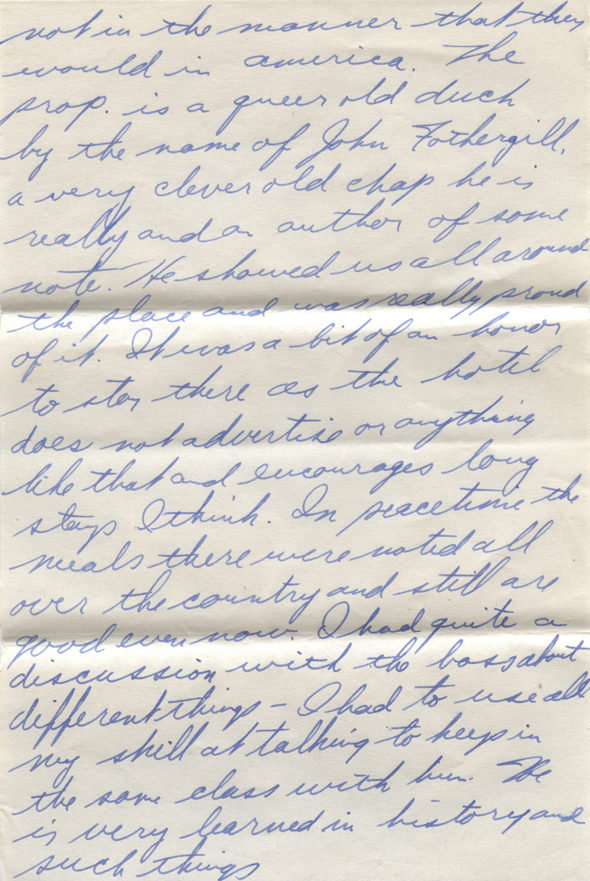 not in the manner that they
would in america. The
prop. is a queer old duck
by the name of John Fothergill,
a very clever old chap he is
really and an author of some
note. He showed us all around
the place and was really proud
of it. It was a bit of an honor
to stay there as the hotel
does not advertise or anything
like that and encourages long
stays I think. In peacetime the
meals there were noted all
over the country and still are
good even now. I had quite a
discussion with the boss about
different things - I had to use all
my skill at talking to keep in
the same class with him. He
is very learned in history and
such things